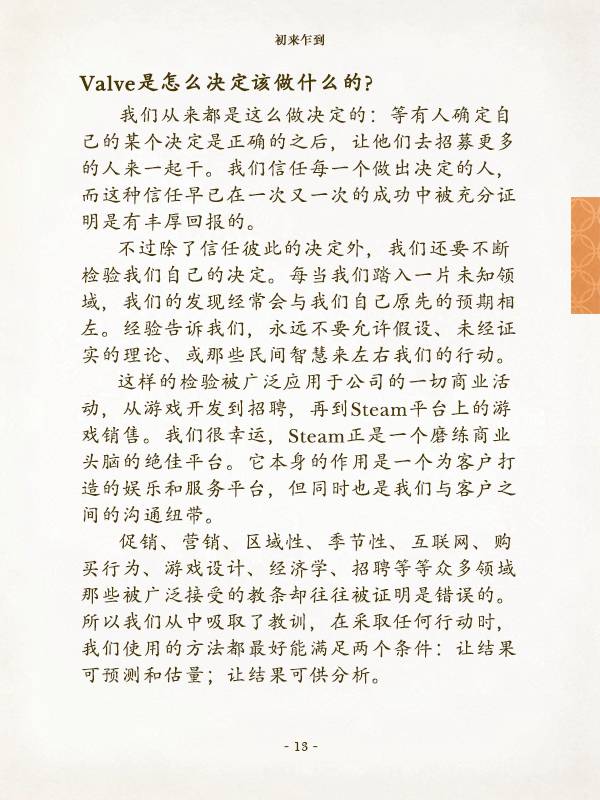 初来乍到
Valve是怎么决定该做什么的?
我们从来都是这么做决定的：等有人确定自
己的某个决定是正确的之后，让他们去招募更多
的人来一起干。我们信任每一个做出决定的人，
而这种信任早已在一次又一次的成功中被充分证
明是有丰厚回报的。
不过除了信任彼此的决定外，我们还要不断
检验我们自己的决定。每当我们踏入一片未知领
域，我们的发现经常会与我们自己原先的预期相
左。经验告诉我们，永远不要允许假设、未经证
实的理论、或那些民间智慧来左右我们的行动。
这样的检验被广泛应用于公司的一切商业活
动，从游戏开发到招聘，再到Steam平台上的游
戏销售。我们很幸运，Steam正是一个磨练商业
头脑的绝佳平台。它本身的作用是一个为客户打
造的娱乐和服务平台，但同时也是我们与客户之
间的沟通纽带。
促销、营销、区域性、季节性、互联网、购
买行为、游戏设计、经济学、招聘等等众多领域
那些被广泛接受的教条却往往被证明是错误的。
所以我们从中吸取了教训，在采取任何行动时，
我们使用的方法都最好能满足两个条件：让结果
可预测和估量；让结果可供分析。
- 13 -